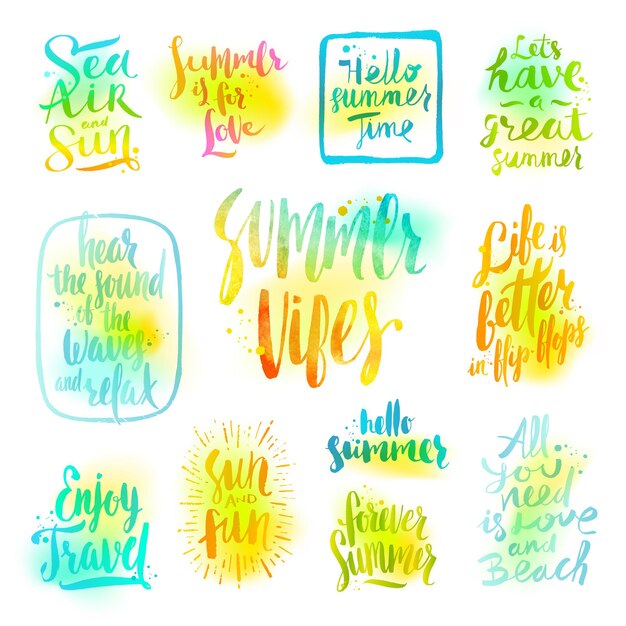 Sea
Air
and
Sun
Summer
is for
Love
Hello
summer
Time
Let's
have
a
great
summer
hear
the sound
of the
waves
and relax
Summer
Vibes
Life is
better
in flip-flops
Enjoy
Travel
Sun
AND
fun
hello
summer
forever
Summer
All
you
need
is Love
and
Beach